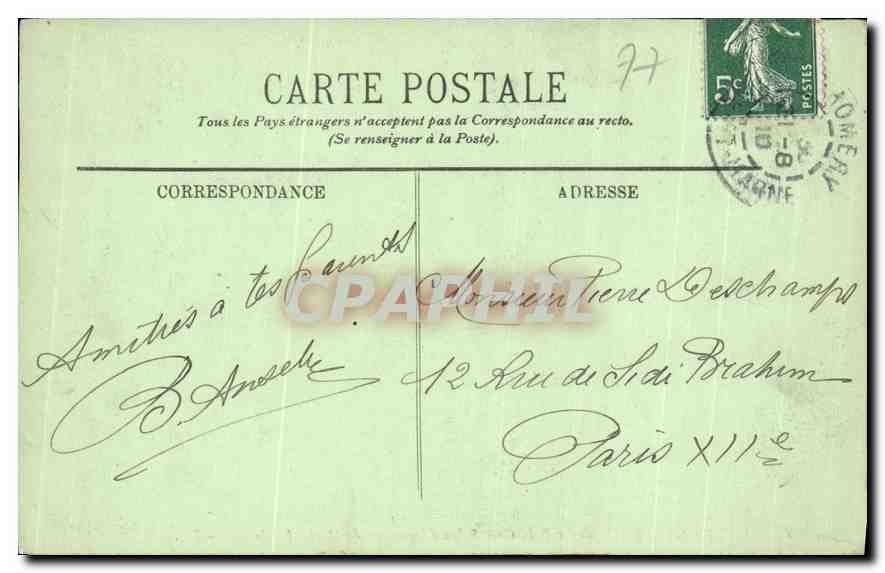 77
5c
POSTES
THOMERY
31-8
10
MARNE
CARTE POSTALE
Tous les Pays étrangers n'acceptent pas la Correspondance au recto.
(Se renseigner à la Poste).
CORRESPONDANCE
ADRESSE
Amitiés à tes Parents
B.
Monsieur Pierre Deschamps
12 Rue de Sidi Brahim
Paris XIIe
CPAPHIL